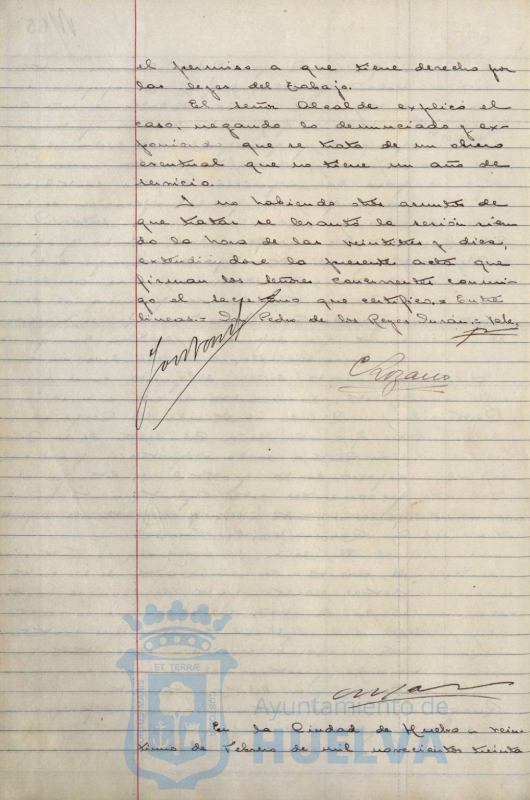 el permiso a que tiene derecho por
las leyes del trabajo.
El señor Alcalde explicó el
caso, negando lo denunciado y ex-
poniendo que se trata de un obrero
eventual que no tiene un año de
servicio.
Y no habiendo otros asuntos de
que tratar se levantó la sesión sien-
do la hora de las veintitres y diez,
extendiéndose la presente acta que
firman los señores concurrentes conmi-
go el secretario que certifico.= Entre
líneas.= Don Pedro de los Reyes Durán.= Vale.
C Lozano
ET TERRÆ
Ayuntamiento de
HUELVA
En la Ciudad de Huelva a vein-
tiuno de Febrero de mil novecientos treinta